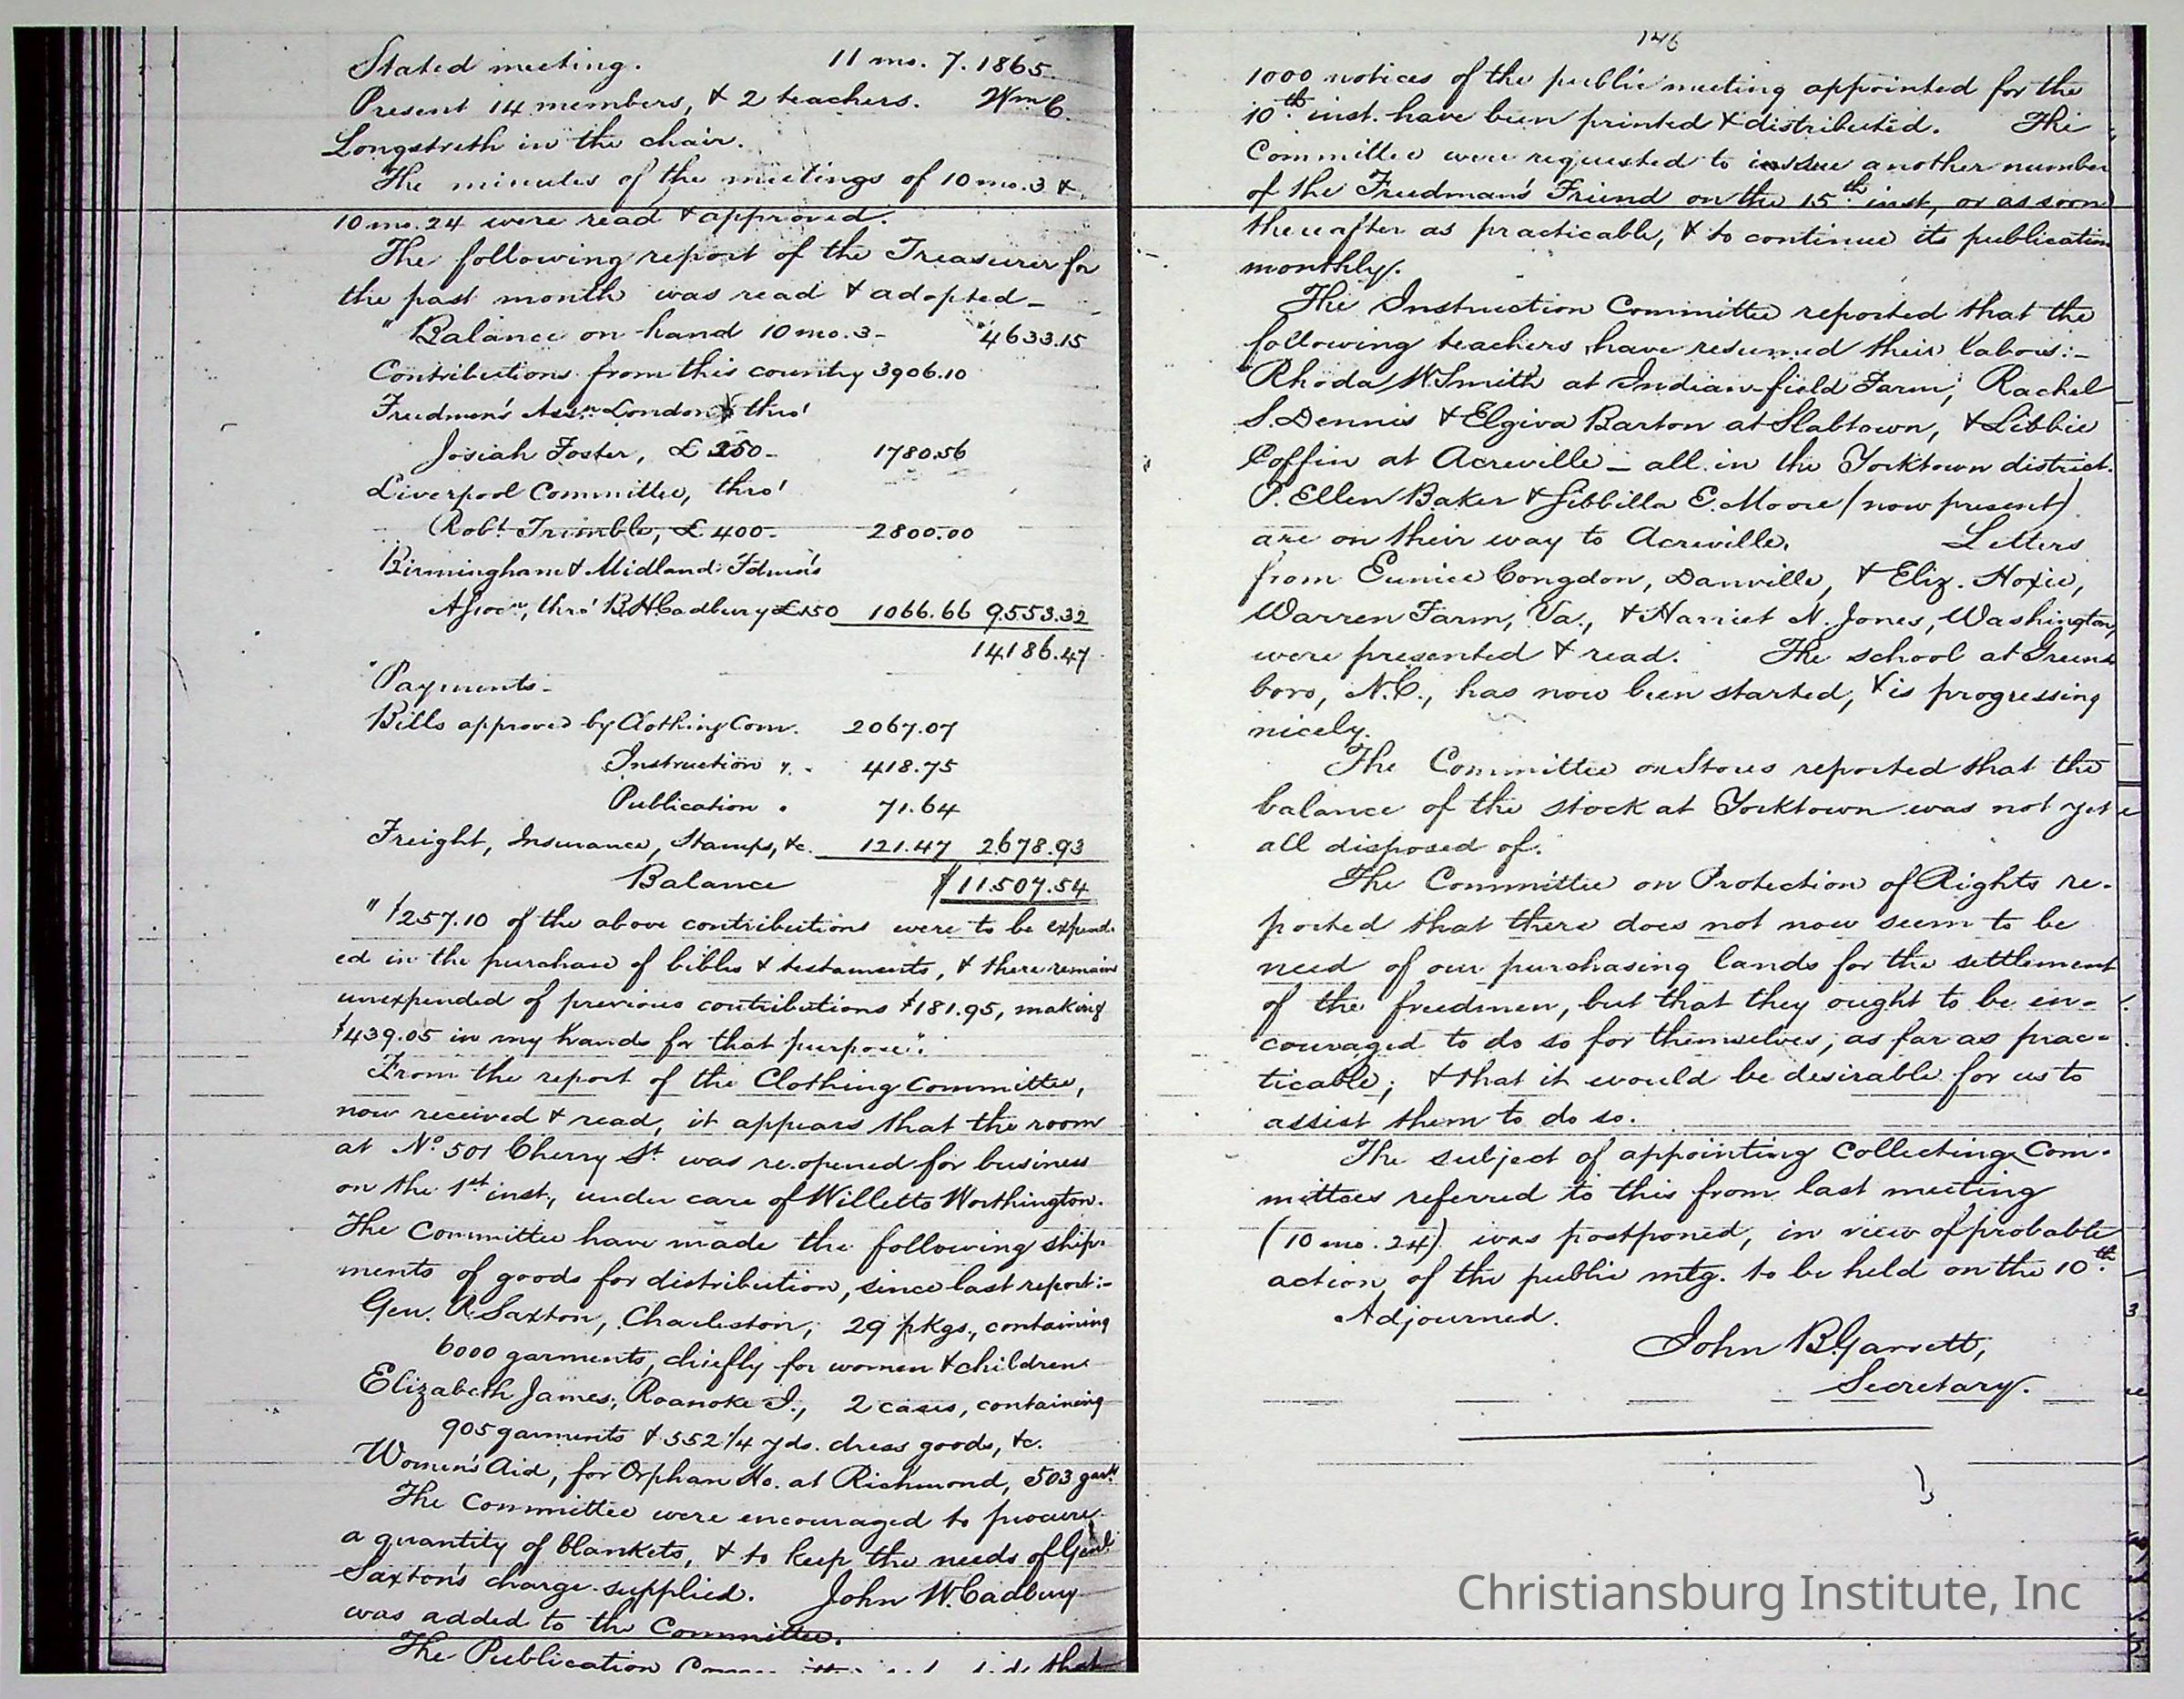 Stated meeting. 11 mo. 7. 1865
Present 14 members, & 2 teachers. Wm C.
Longstreth in the chair.
The minutes of the meetings of 10 mo. 3 &
10 mo. 24 were read & approved.
The following report of the Treasurer for
the past month was read & adopted –
"Balance on hand 10 mo. 3 – 4633.15
Contributions from this country 3906.10
Freedmen's Assn. London thro'
Josiah Foster, £250 – 1780.56
Liverpool Committee, thro'
Robt. Trimble, £400 – 2800.00
Birmingham & Midland Fdmn's
Assocn, thro' B.H. Cadbury £150 1066.66 9553.32
14186.47
"Payments –
Bills approved by Clothing Com. 2067.07
Instruction " 418.75
Publication " 71.64
Freight, Insurance, Stamps, &c. 121.47 2678.93
Balance $11.507.54
"$257.10 of the above contributions were to be expend-
ed in the purchase of bibles & testaments, & there remain
unexpended of previous contributions $181.95, making
$439.05 in my hands for that purpose".
From the report of the Clothing Committee,
now received & read, it appears that the room
at No. 501 Cherry St. was re-opened for business
on the 1st inst., under care of Willetts Worthington.
The Committee have made the following ship-
ments of goods for distribution, since last report:–
Gen. R. Saxton, Charleston, 29 pkgs., containing
6000 garments, chiefly for women & children
Elizabeth James, Roanoke I., 2 cases, containing
905 garments & 552 1/4 yds. dress goods, &c.
Women's Aid, for Orphan Ho. at Richmond, 503 garts
The Committee were encouraged to procure
a quantity of blankets, & to keep the needs of Genl.
Saxton's charge supplied. John W. Cadbury
was added to the Committee.
The Publication that
146
1000 notices of the public meeting appointed for the
10th inst. have been printed & distributed. The
Committee were requested to issue another number
of the Freedman's Friend on the 15th inst, or as soon
thereafter as practicable, & to continue its publication
monthly.
The Instruction Committee reported that the
following teachers have resumed their labors:–
Rhoda W. Smith at Indian-field Farm, Rachel
S. Dennis & Elgiva Barton at Slabtown, & Libbie
Coffin at Acreville – all in the Yorktown district.
P. Ellen Baker & Sibbilla E. Moore (now present)
are on their way to Acreville. Letters
from Eunice Congdon, Danville, & Eliz. Hoxie,
Warren Farm, Va., & Harriet N. Jones, Washington,
were presented & read. The school at Greens
boro, N.C., has now been started, & is progressing
nicely.
The Committee on Stores reported that the
balance of the stock at Yorktown was not yet
all disposed of.
The Committee on Protection of Rights re-
ported that there does not now seem to be
need of our purchasing lands for the settlement
of the freedmen, but that they ought to be en-
couraged to do so for themselves, as far as prac-
ticable; & that it would be desirable for us to
assist them to do so.
The subject of appointing Collecting Com-
mittees referred to this from last meeting
(10 mo. 24) was postponed, in view of probable
action of the public mtg. to be held on the 10th.
Adjourned.
John B. Garrett,
Secretary.
Christiansburg Institute, Inc